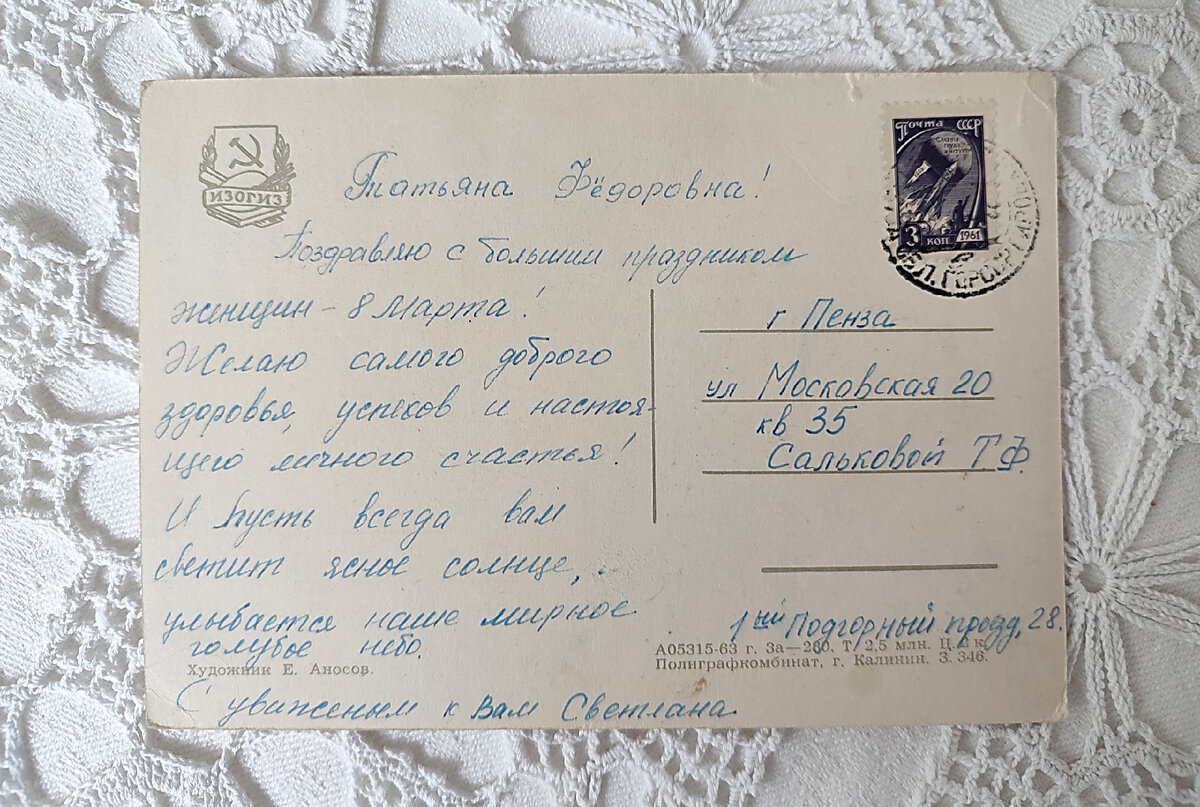 ИЗОГИЗ
Почта СССР
3 коп. 1961
Татьяна Фёдоровна!
Поздравляю с большим праздником
женщин - 8 Марта!
Желаю самого доброго
здоровья, успехов и настоя-
щего личного счастья!
И пусть всегда вам
светит ясное солнце,
улыбается наше мирное
голубое небо.
Художник Е. Аносов.
С уваженьем к Вам Светлана
г Пенза
ул Московская 20
кв 35
Сальковой Т.Ф
1ый Подгорный проезд, 28.
А05315-63 г. За—260. Т. 2,5 млн. Ц. 2 к.
Полиграфкомбинат, г. Калинин. З. 346.